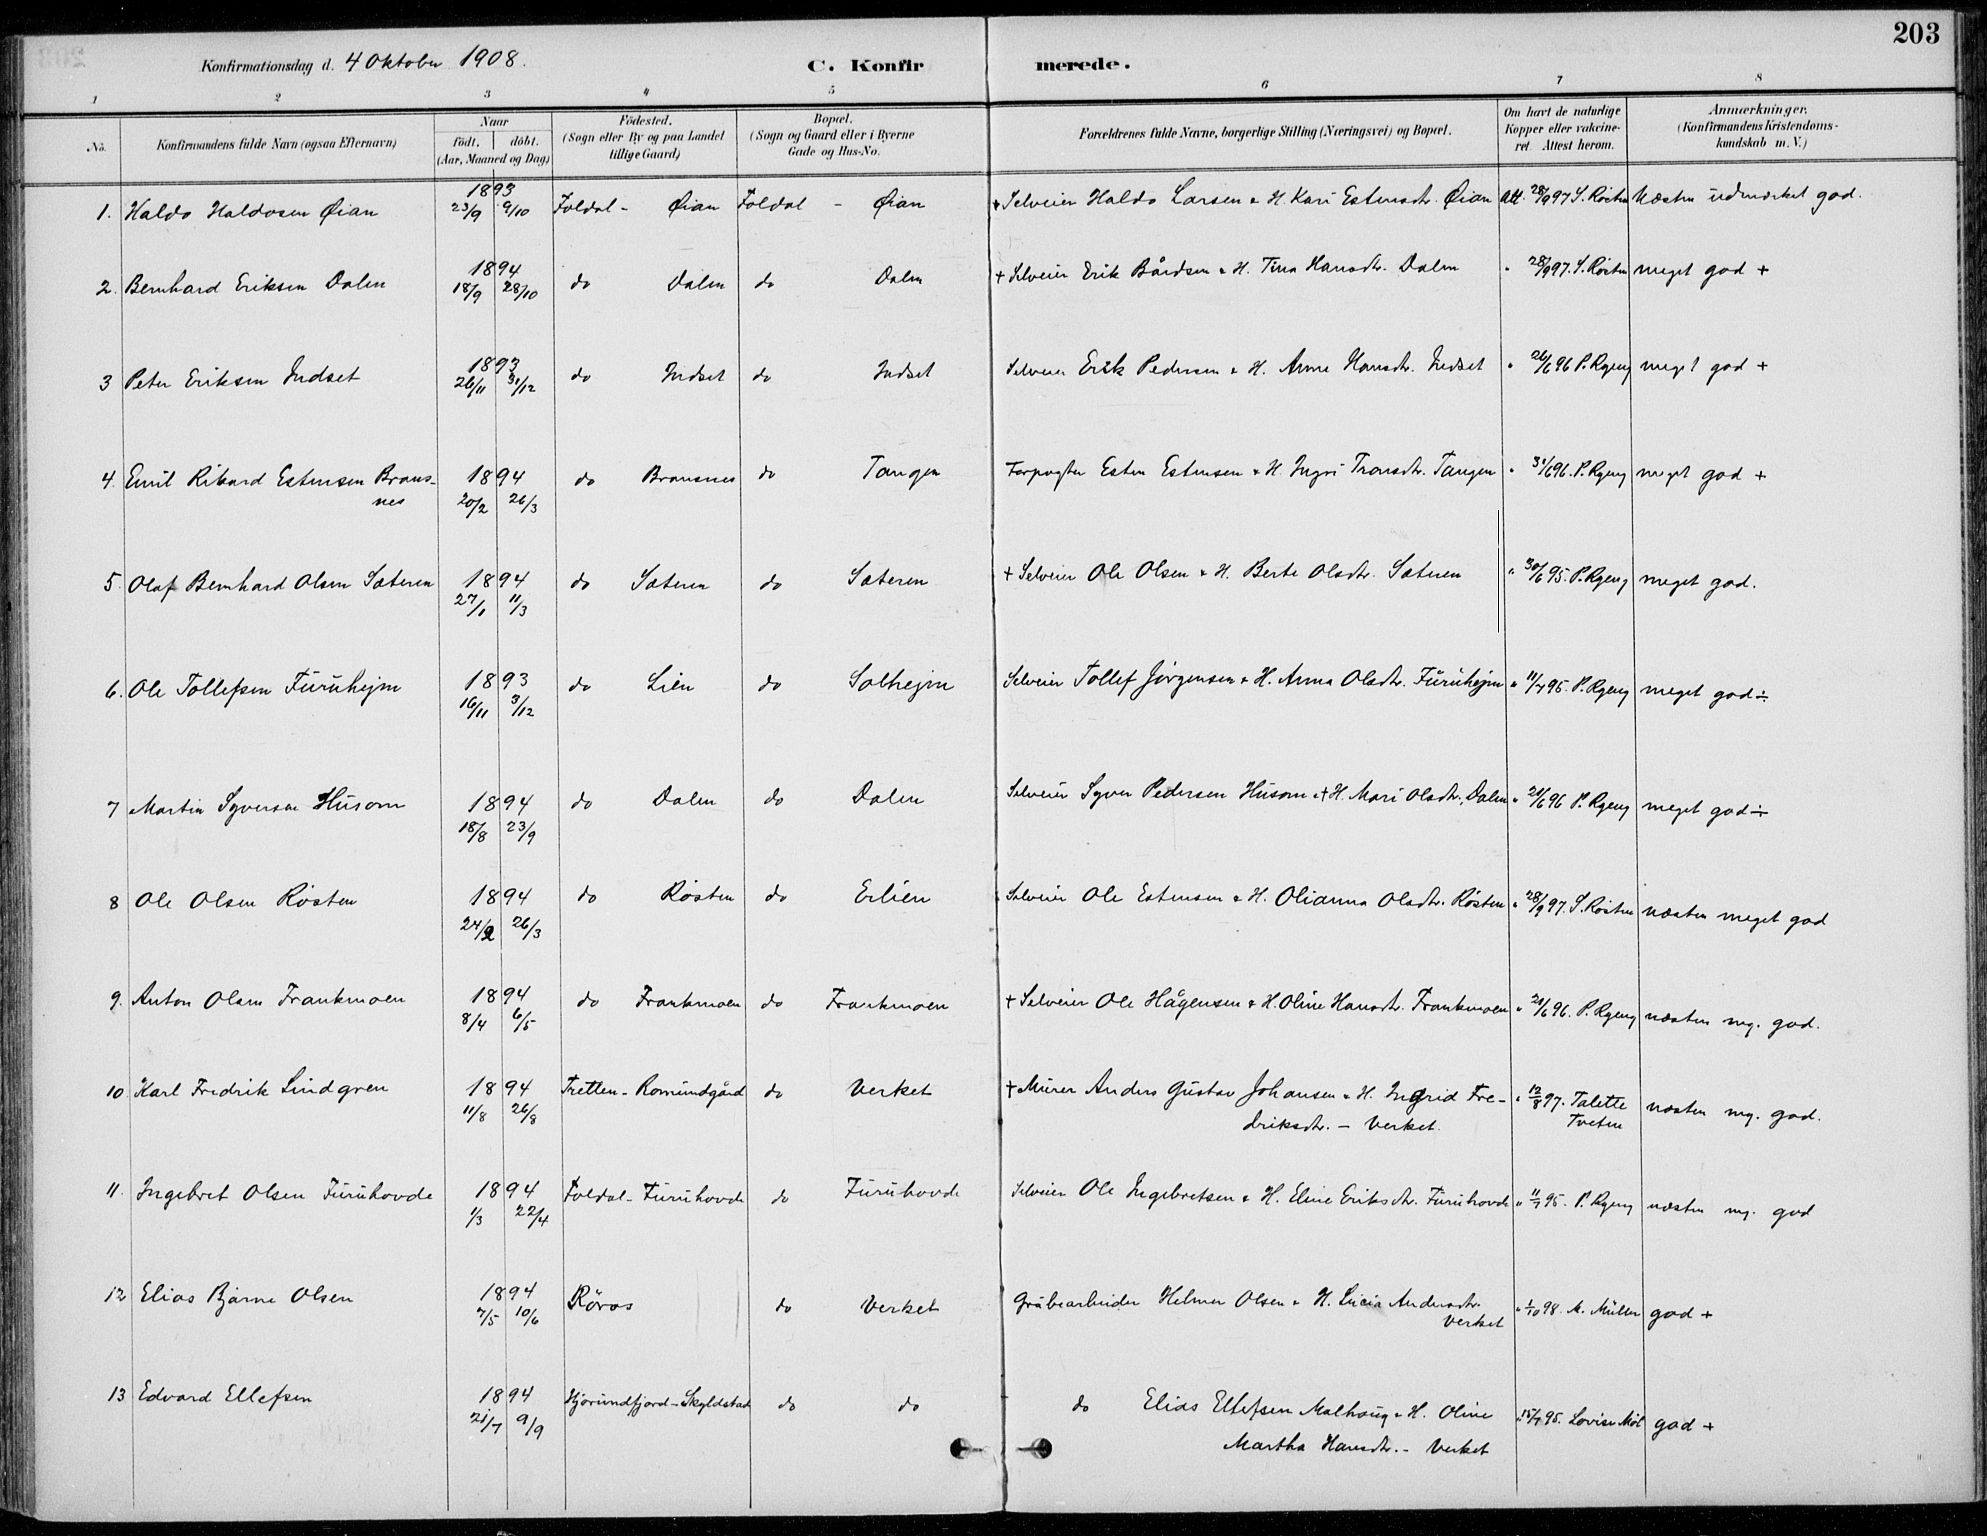 203
Konfirmationsdag d. 4 Oktober 1908.
C. Konfirmerede.
1 2 3 4 5 6 7 8
No. Konfirmandens fulde Navn (ogsaa Efternavn) Naar födt. döbt. (Aar, Maaned og Dag) Födested. (Sogn eller By og paa Landet tillige Gaard) Bopæl. (Sogn og Gaard eller i Byerne Gade og Hus-No. Forældrenes fulde Navne, borgerlige Stilling (Næringsvei) og Bopæl. Om havt de naturlige Kopper eller vakcineret. Attest herom. Anmærkninger. (Konfirmandens Kristendomskundskab m. V.)
1. Haldo Haldosen Øian 1893 23/9 9/10 Foldal - Øian Foldal - Øian + Selveier Haldo Larsen & H. Kari Estensdtr. Øian Att. 28/9 97 S. Rosten Næsten udmærket god.
2. Bernhard Eriksen Dalen 1894 18/9 28/10 do Dalen do Dalen + Selveier Erik Bårdsen & H. Tina Hansdtr. Dalen " 28/9 97. S. Rosten meget god +
3 Peter Eriksen Indset 1893 26/11 31/12 do Indset do Indset Selveier Erik Pedersen & H. Anne Hansdtr. Indset " 26/6 96 P. Ryeng meget god +
4. Emil Rikard Estensen Brans-
nes 1894 20/2 26/3 do Bransnes do Tangen Forpagter Esten Estensen & H. Ingri Tronsdtr. Tangen " 31/6 96. P. Ryeng meget god +
5. Olaf Bernhard Olsen Sæteren 1894 27/1 11/3 do Sæteren do Sæteren + Selveier Ole Olsen & H. Berte Olsdtr. Sæteren " 30/6 95. P. Ryeng meget god.
6. Ole Tollefsen Furuhejm 1893 16/11 3/12 do Lien do Solhejm Selveier Tollef Jørgensen & H. Anna Olsdtr. Furuhejm " 11/7 95. P. Ryeng meget god ÷
7 Martin Syversen Husom 1894 18/8 23/9 do Dalen do Dalen Selveier Syver Pedersen Husom & + H. Mari Olsdtr., Dalen " 21/6 96 P. Ryeng meget god ÷
8 Ole Olsen Røsten 1894 24/2 26/3 do Røsten do Erlien Selveier Ole Estensen & H. Olianna Olsdtr. Røsten " 28/9 97. S. Rosten næsten meget god
9. Anton Olsen Frankmoen 1894 8/4 6/5 do Frankmoen do Frankmoen + Selveier Ole Hågensen & H. Oline Hansdtr. Frankmoen " 21/6 96. P. Ryeng næsten mg. god.
10 Karl Fredrik Lindgren 1894 11/8 26/8 Tretten - Romundgård do Verket + Murer Anders Gustav Johansen & H. Ingrid Fre-
driksdtr. - Verket. " 12/8 97. Talette Tveten næsten mg. god.
11. Ingebret Olsen Furuhovde 1894 1/3 22/4 Foldal - Furuhovde do Furuhovde Selveier Ole Ingebretsen & H. Eline Eriksdtr. Furuhovde " 11/7 95. P. Ryeng næsten mg. god
12 Elias Bjarne Olsen 1894 7/5 10/6 Röros do Verket Grubearbeider Helmer Olsen & H. Lucia Andersdtr.
Verket " 1/10 98. M. Müller god +
13 Edvard Ellefsen 1894 21/7 9/9 Hjørundfjord - Skyldstad do do do Elias Ellefsen Molhaug & H. Oline
Martha Hansdtr. - Verket " 15/7 95. Lovise Møl god +